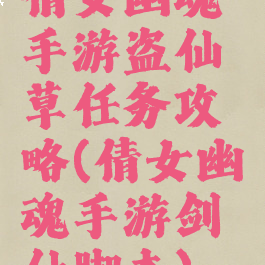 倩女幽魂
手游盗仙
草任务攻
略(倩女幽
魂手游剑
仙脚本)